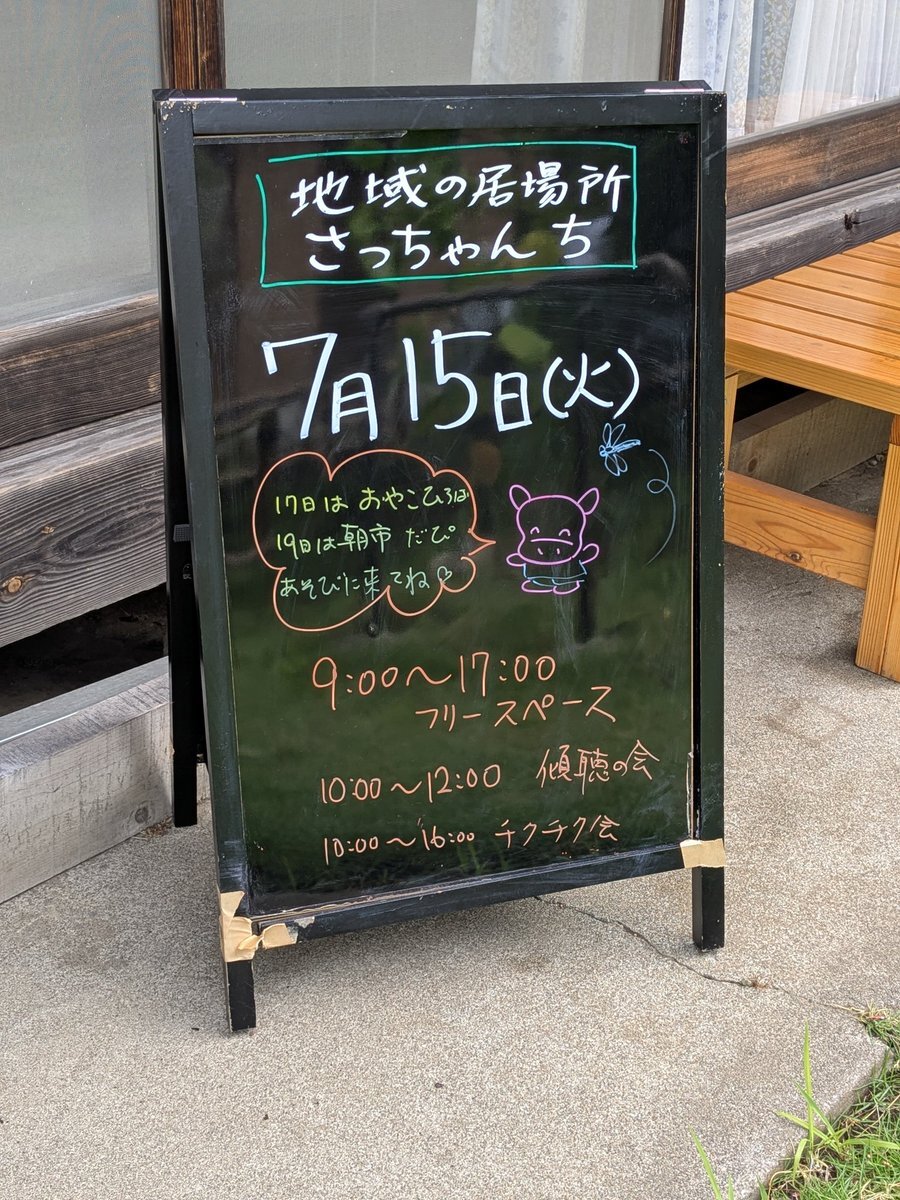 地域の居場所
さっちゃんち
7月15日(火)
17日は おやこひろば
19日は朝市 だぴ
あそびに来てね♡
9:00～17:00
フリースペース
10:00～12:00 傾聴の会
10:00～16:00 チクチク会